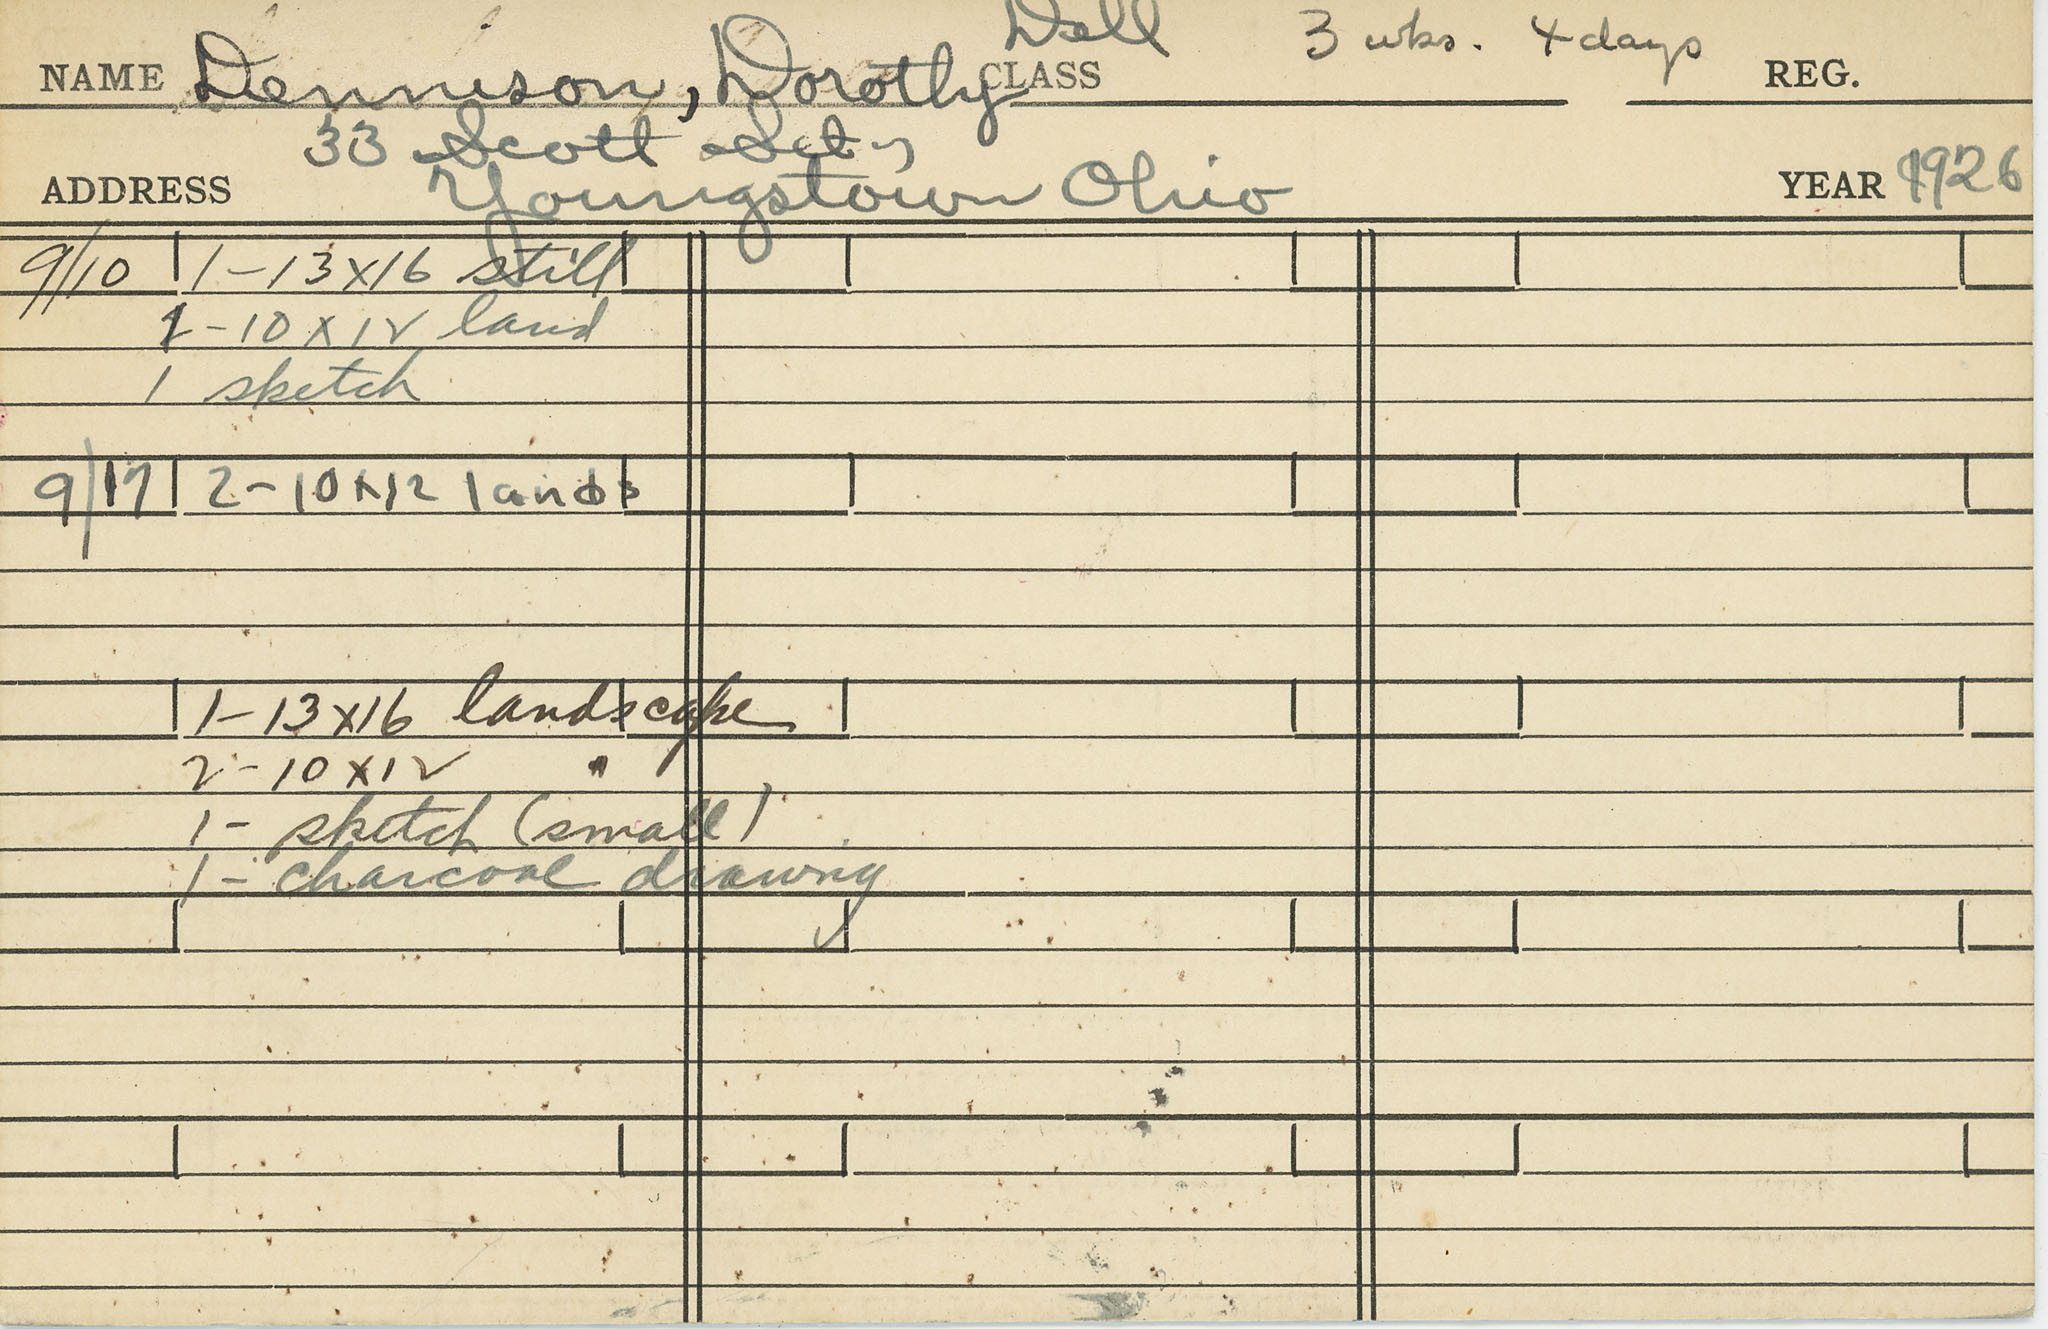 Dell 3 wks. 4 days
NAME Dennison, Dorothy CLASS REG.
33 Scott Set,
ADDRESS Youngstown Ohio YEAR 1926
9/10 1-13x16 still
-10x12 land
1 sketch
9/17 2-10x12 lands
1-13x16 landscape
2-10x12 "
1- sketch (small)
1- charcoal drawing